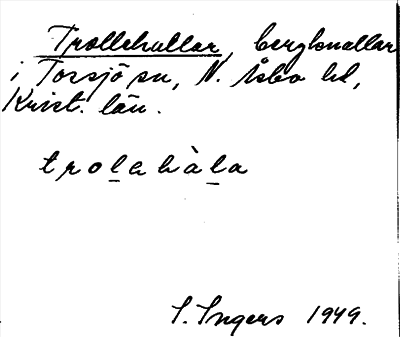 Trollehallar, bergknallar
i Torsjö sn, N. Åsbo hd,
Krist. län.
trolehàla
S. Ingers 1949.